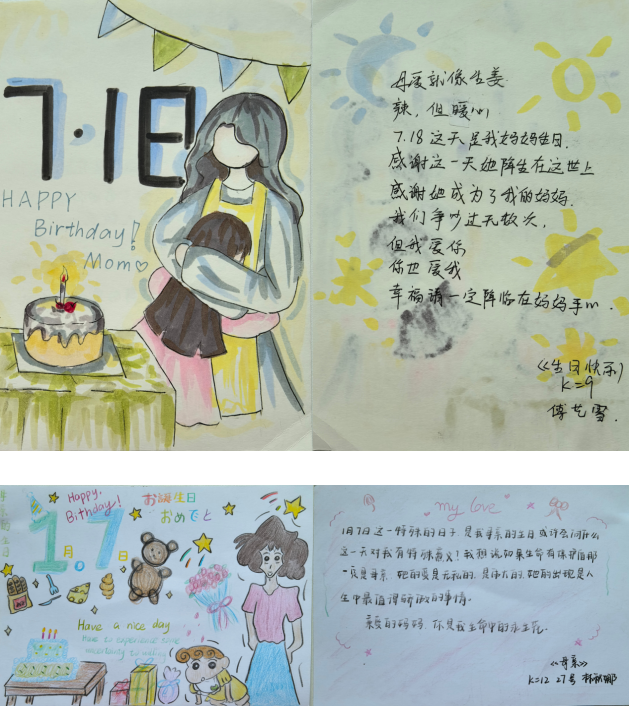 7.18
HAPPY
Birthday!
Mom♡
母爱就像生姜
辣，但暖心
7.18这天是我妈妈生日.
感谢这一天她降生在这世上
感谢她成为了我的妈妈.
我们争吵过无数次，
但我爱你
你也爱我
幸福请一定降临在妈妈手m.
《生日快乐》
K=9
雪.
Happy
Birthday!
お誕生日
おめでと
1月7日
Have a nice day
my love
1月7日这一特殊的日子.是我母亲的生日 或许会问
这一天对我有特殊意义！我想说如果生命有保护伞那
一定是母亲 她的爱是无私的.是伟大的.她的出现是人
生中最值得的事情.
亲爱的妈妈.你是我生命中的永生花.
《母亲》
K=12 27号